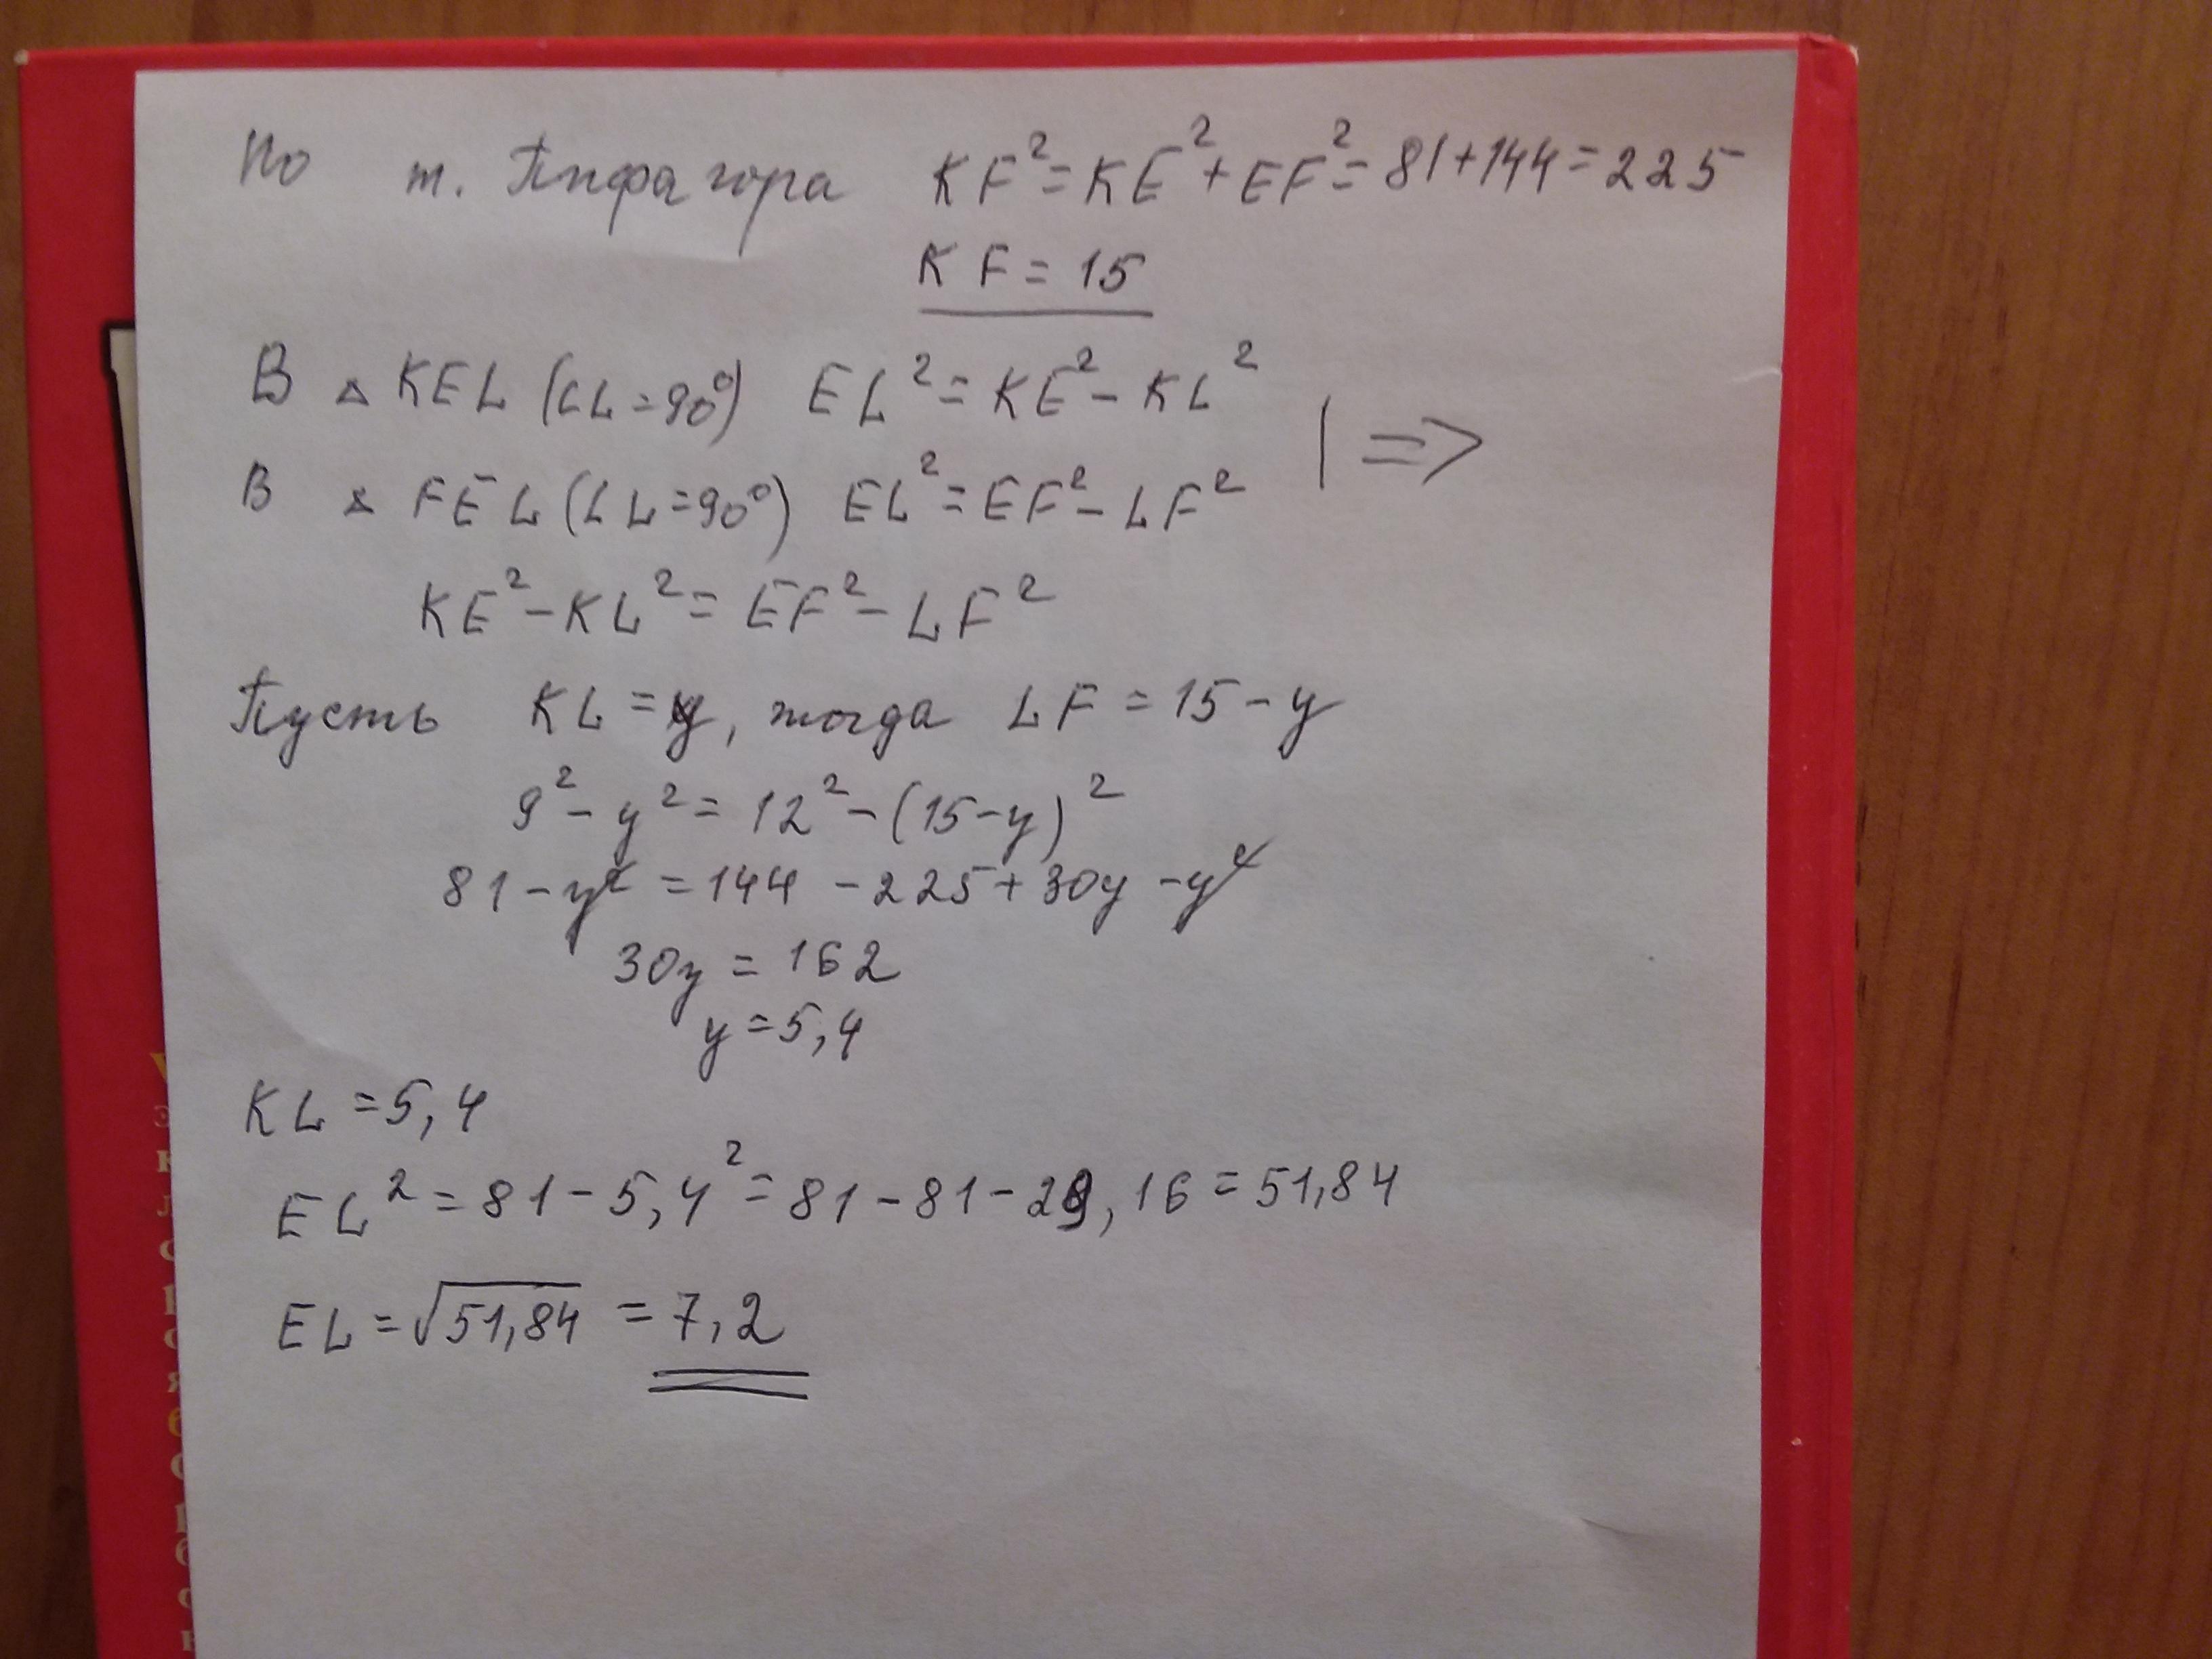 По т. Пифагора KF² = KE² + EF² = 81 + 144 = 225
KF = 15
В △ KEL (∠L = 90°) EL² = KE² - KL²
| =>
В △ FEL (∠L = 90°) EL² = EF² - LF²
KE² - KL² = EF² - LF²
Пусть KL = y, тогда LF = 15 - y
9² - y² = 12² - (15 - y)²
81 - y² = 144 - 225 + 30y - y²
30y = 162
y = 5,4
KL = 5,4
EL² = 81 - 5,4² = 81 - 81 - 29,16 = 51,84
EL = √51,84 = 7,2